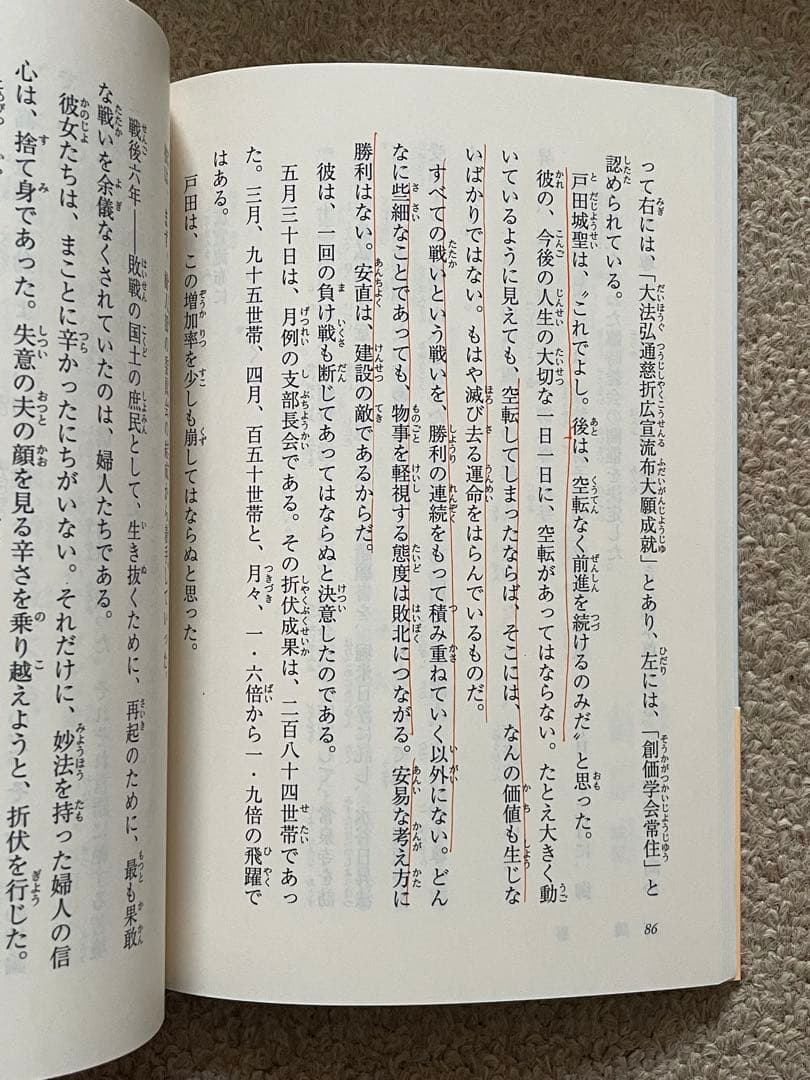 って右には、「大法弘通慈折広宣流布大願成就」とあり、左には、「創価学会常住」と
認められている。
戸田城聖は、〝これでよし。後は、空転なく前進を続けるのみだ〟と思った。
彼の、今後の人生の大切な一日一日に、空転があってはならない。たとえ大きく動
いているように見えても、空転してしまったならば、そこには、なんの価値も生じな
いばかりではない。もはや滅び去る運命をはらんでいるものだ。
すべての戦いという戦いを、勝利の連続をもって積み重ねていく以外にない。どん
なに些細なことであっても、物事を軽視する態度は敗北につながる。安易な考え方に
勝利はない。安直は、建設の敵であるからだ。
彼は、一回の負け戦も断じてあってはならぬと決意したのである。
五月三十日は、月例の支部長会である。その折伏成果は、二百八十四世帯であっ
た。三月、九十五世帯、四月、百五十世帯と、月々、一・六倍から一・九倍の飛躍で
はある。
戸田は、この増加率を少しも崩してはならぬと思った。
86
戦後六年――敗戦の国土の庶民として、生き抜くために、再起のために、最も果敢
な戦いを余儀なくされていたのは、婦人たちである。
彼女たちは、まことに辛かったにちがいない。それだけに、妙法を持った婦人の信
心は、捨て身であった。失意の夫の顔を見る辛さを乗り越えようと、折伏を行じた。